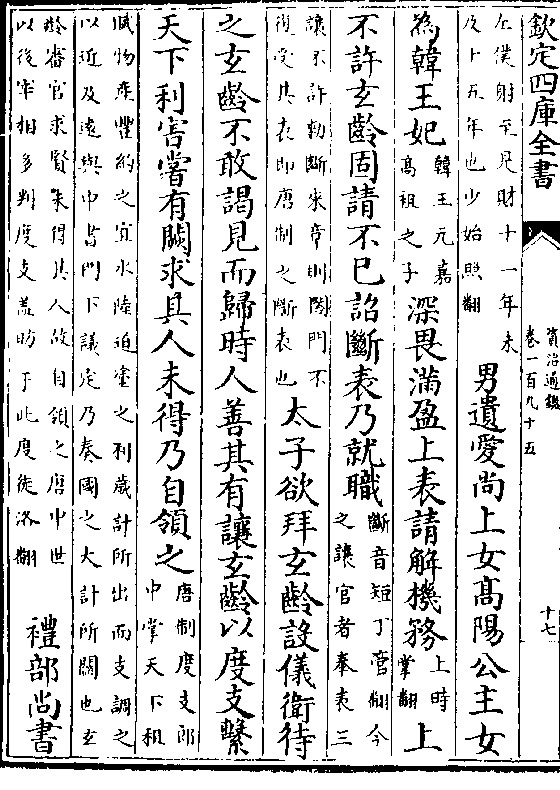 欽定四庫全書
資治通鑑
卷一百九十五
十七
左僕射至是財十一年未
及十五年也少始照翻
男遺愛尚上女髙陽公主女
為韓王妃
韓王元嘉
髙祖之子
深畏滿盈上表請解機務
上時
掌翻
上
不許玄齡固請不已詔斷表乃就職
斷音短丁管翻今
之讓官者奉表三
讓不許勅斷來章則閤門不
復受其表即唐制之斷表也
太子欲拜玄齡設儀衛待
之玄齡不敢謁見而歸時人善其有讓玄齡以度支繫
天下利害嘗有闕求其人未得乃自領之
唐制度支郎
中掌天下租
賦物産豐約之宜水陸道塗之利歲計所出而支調之
以近及逺與中書門下議定乃奏國之大計所關也玄
齡審官求賢未得其人故自領之唐中世
以後宰相多判度支蓋昉于此度徒洛翻
禮部尚書